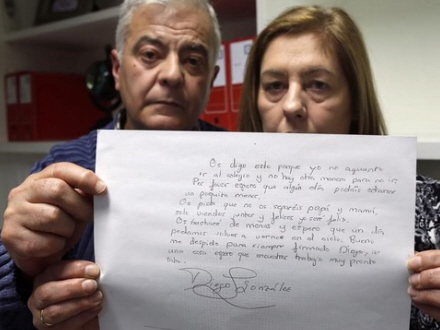 Os digo esto porque yo no aguanto
ir al colegio y no hay otra manera para no ir
Por favor espero que algún día podáis odiarme
un poquito menos.
Os pido que no os separéis papá y mamá,
sólo viéndoos juntos y felices yo seré feliz.
Os echaré de menos y espero que un día
podamos volver a vernos en el cielo. Bueno
me despido para siempre firmando Diego, a
una cosa espero que encuentres trabajo muy pronto
Tata.
Diego González